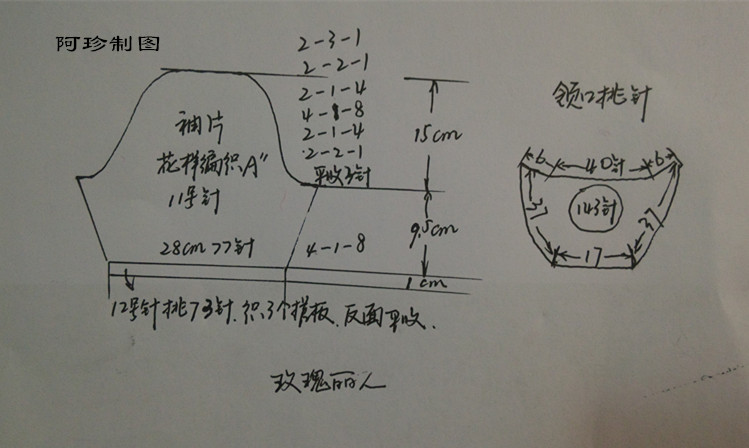 阿珍制图
2-3-1
2-2-1
2-1-4
4-1-8
2-1-4
2-2-1
平收3针
袖片
花样编织A"
11号针
28cm 77针
4-1-8
15cm
9.5cm
1cm
12号针挑73针.织3个搓板.反面平收.
领口挑针
6 40针 6
37 143针 37
17
玫瑰丽人